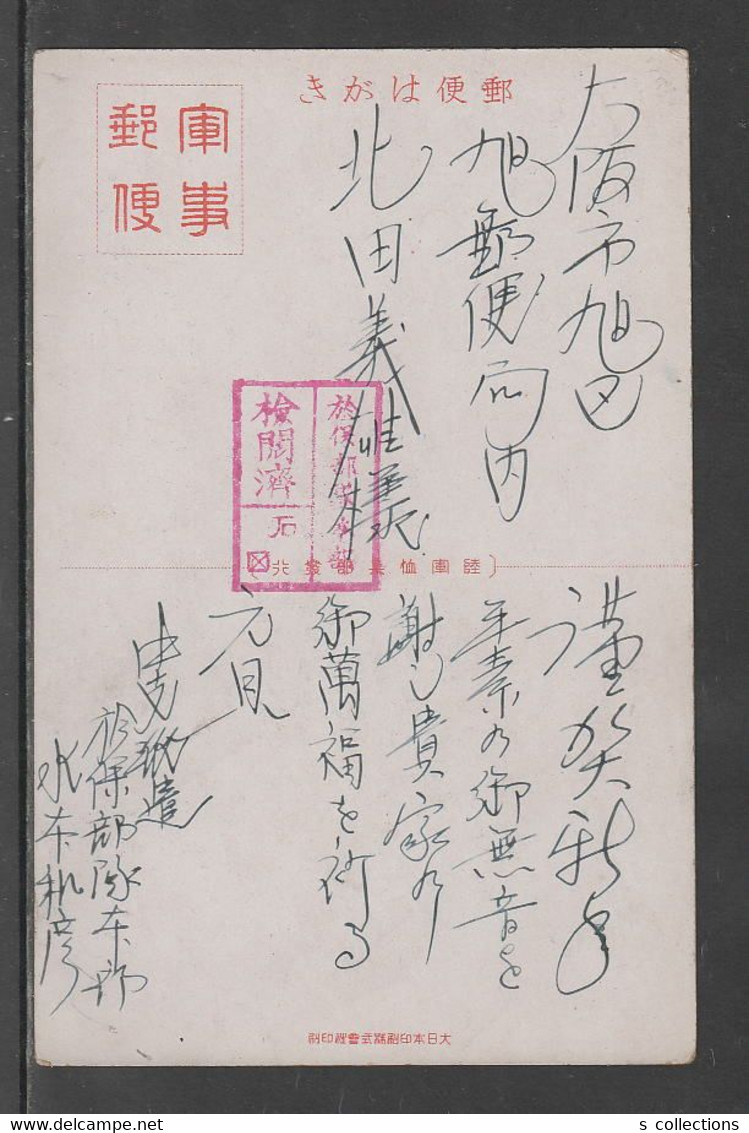 郵便はがき
軍事
郵便
大阪市旭区
旭郵便局内
北田義雄様
於保部隊本部
検閲済
石
〔陸軍恤兵部發行〕
謹賀新年
平素の御無音を
謝し貴家の
御萬福を祈る
元旦
中支派遣
於保部隊本部
水本
大日本印刷株式會社印刷
s collections